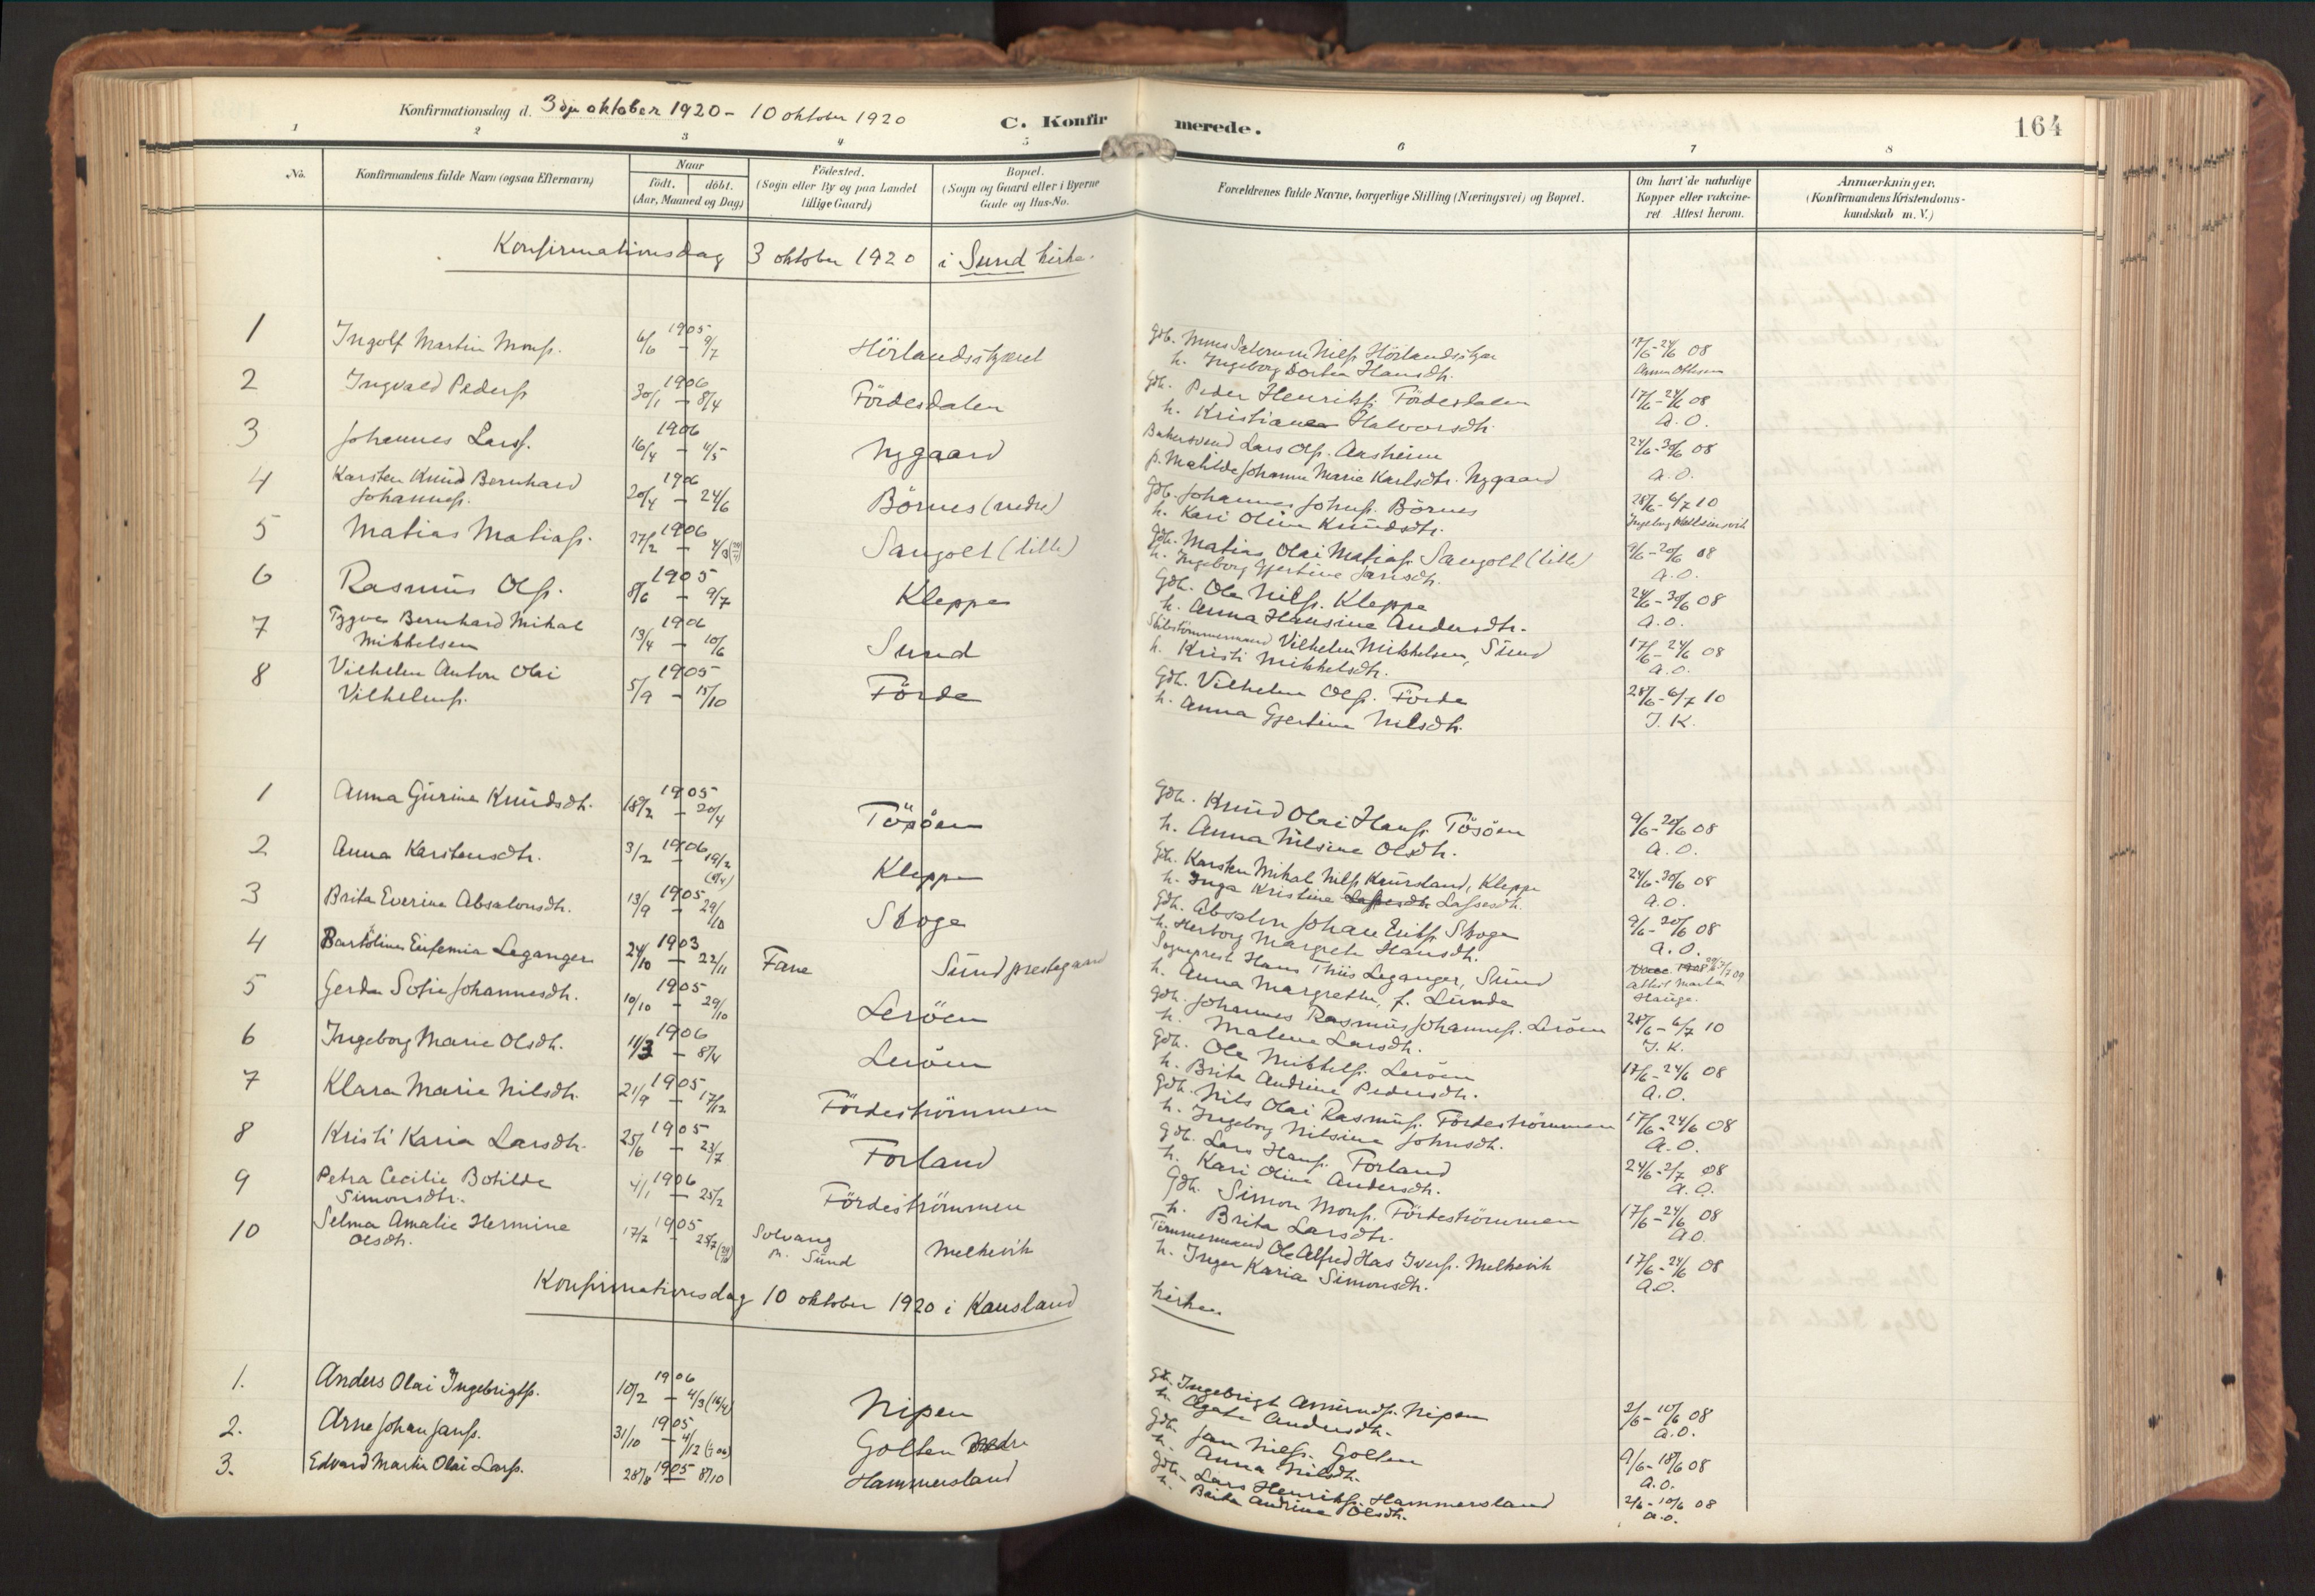 Konfirmationsdag d. 3dje oktober 1920 - 10 oktober 1920
C. Konfirmerede.
164
1 2 3 4 5 6 7 8
No.
Konfirmandens fulde Navn (ogsaa Efternavn)
Naar
født. døbt.
(Aar, Maaned og Dag)
Födested.
(Sogn eller By og paa Landet
tillige Gaard)
Bopæl.
(Sogn og Gaard eller i Byerne
Gade og Hus-No.
Forældrenes fulde Navne, borgerlige Stilling (Næringsvei) og Bopæl.
Om havt de naturlige
Kopper eller vakcine-
ret. Attest herom.
Anmærkninger.
(Konfirmandens Kristendoms-
kundskab m. V.)
Konfirmationsdag 3 oktober 1920 i Sund kirke.
1 Ingolf Martin Monss. 1905 6/6 - 9/7 Hörlandsskjæret Gdb. Mons Salomon Nilss. 17/6-24/6 08
h. Ingeborg Dortea Hansdtr. Anna Ottesen
2 Ingvald Pederss. 1906 30/1 - 8/4 Fördesdalen Gdb. Peder Henrikss. Fördesdalen 17/6-24/6 08
h. Kristianea Halvorsdtr. A.O.
3 Johannes Larss. 1906 16/4 - 4/5 Nygaard Bakersvend Lars Olss. Aasheim 24/6-30/6 08
p. Matilde Johanne Marie Karlsdtr. Nygaard A.O.
4 Karsten Knud Bernhard Johanness. 1906 20/4 - 24/6 Börnes (nedre) Gdb. Johannes Johnss. Börnes 28/6-6/7 10
h. Kari Oline Knudsdtr. Ingeborg
5 Matias Matiass. 1906 27/2 - 4/3 Sangolt (lille) Gdb. Matias Olai Matiass. Sangolt (lille) 9/6-20/6 08
h. Ingeborg Gjertine Jansdtr. A.O.
6 Rasmus Olss. 1905 8/6 - 9/7 Kleppe Gdb. Ole Nilss. Kleppe 24/6-30/6 08
h. Anna Hansine Andersdtr. A.O.
7 Tygve Bernhard Mikal Mikkelsen 1906 13/4 - 10/6 Sund Skibstömmermand Vilhelm Mikkelsen, Sund 17/6-24/6 08
h. Kristi Mikkelsdtr. A.O.
8 Vilhelm Anton Olai Vilhelmss. 1905 5/9 - 15/10 Förde Gdb. Vilhelm Olss. Förde 28/6-6/7 10
h. Anna Gjertine Nilsdtr. I.K.
1 Anna Gurine Knudsdtr. 1905 18/2 - 20/4 Tösöen Gdb. Knud Olai Hanss. Tösöen 9/6-20/6 08
h. Anna Nilsine Olsdtr. A.O.
2 Anna Karstensdtr. 1906 3/2 - 19/2 Kleppe Gdb. Karsten Mikal Nilss. Kausland, Kleppe 24/6-30/6 08
h. Inga Kristine Lassesdtr. Lassesdtr. A.O.
3 Brita Everine Absalonsdtr. 1905 13/9 - 29/10 Skoge Gdb. Absalon Johan Eriks. Skoge 9/6-20/6 08
h. Herborg Margrete Hansdtr. A.O.
4 Bartoline Eufemia Leganger 1903 24/10 - 22/11 Fane Sund prestegaard Sogneprest Hans Thiis Leganger, Sund
h. Anna Margrethe, f. Lunde attest Marta Hauge.
5 Gerda Sofie Johannesdtr. 1905 10/10 - 29/10 Leröen Gdb. Johannes Rasmus Johanness. Leröen 28/6-6/7 10
h. Malene Larsdtr. I.K.
6 Ingeborg Marie Olsdtr. 1906 11/3 - 8/4 Leröen Gdb. Ole Mikkelss. Leröen 17/6-24/6 08
h. Brita Andrine Pedersdtr. A.O.
7 Klara Marie Nilsdtr. 1905 21/9 - 17/12 Fördeströmmen Gdb. Nils Olai Rasmuss. Fördeströmmen 17/6-24/6 08
h. Ingeborg Nilsine Johnsdtr. A.O.
8 Kristi Karia Larsdtr. 1905 25/6 - 23/7 Forland Gdb. Lars Hanss. Forland 24/6-2/7 08
h. Kari Oline Andersdtr. A.O.
9 Petra Cecilie Botilde Simonsdtr. 1906 4/1 - 25/2 Fördeströmmen Gdb. Simon Monss. Fördeströmmen 17/6-24/6 08
h. Brita Larsdtr. A.O.
10 Selma Amalie Hermine Olsdtr. 1905 17/2 - 25/7 Solvang p. Sund Melkevik Tömmermand Ole Alfred Has Iverss. Melkevik 17/6-24/6 08
h. Inger Karia Simonsdtr. A.O.
Konfirmationsdag 10 oktober 1920 i Kausland kirken
1. Anders Olai Ingebrigtss. 1906 10/2 - 4/3 (16/4) Nipen Gdb. Ingebrigt Amundss. Nipen 2/6-10/6 08
h. Agate Andersdtr. A.O.
2. Arne Johan Janss. 1905 31/10 - 4/12 Golten nedre Gdb. Jan Nilss. Golten 9/6-18/6 08
h. Anna Nilsdtr. A.O.
3. Edvard Martin Olai Larss. 1905 28/8 - 8/10 Hammersland Gdb. Lars Henrikss. Hammersland 2/6-10/6 08
h. Brita Andrine Olsdtr. A.O.